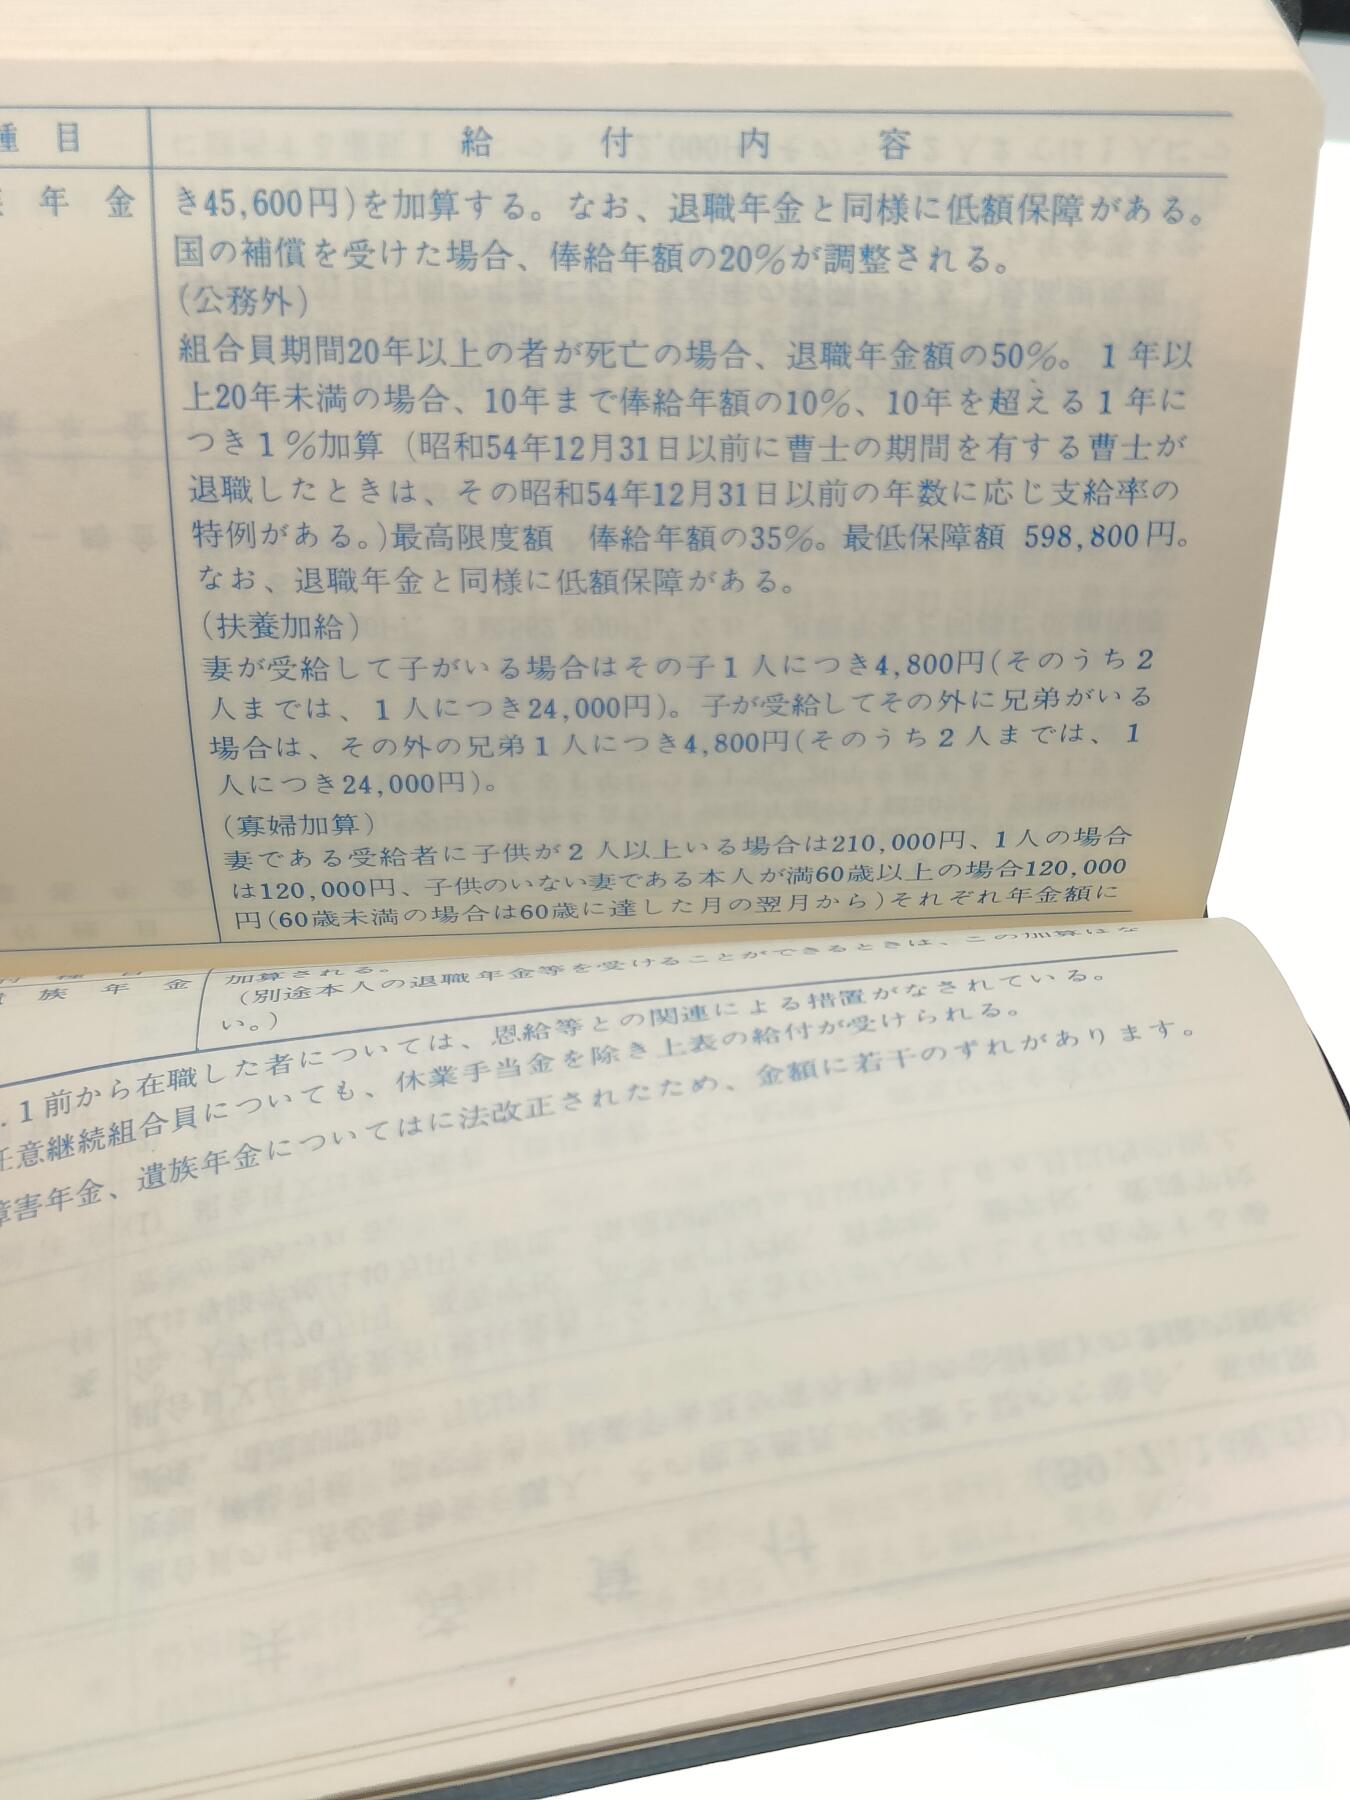 種目 給付内容
年金 き45,600円)を加算する。なお、退職年金と同様に低額保障がある。
国の補償を受けた場合、俸給年額の20%が調整される。
(公務外)
組合員期間20年以上の者が死亡の場合、退職年金額の50%。1年以
上20年未満の場合、10年まで俸給年額の10%、10年を超える1年に
つき1%加算(昭和54年12月31日以前に曹士の期間を有する曹士が
退職したときは、その昭和54年12月31日以前の年数に応じ支給率の
特例がある。)最高限度額 俸給年額の35%。最低保障額 598,800円。
なお、退職年金と同様に低額保障がある。
(扶養加給)
妻が受給して子がいる場合はその子1人につき4,800円(そのうち2
人までは、1人につき24,000円)。子が受給してその外に兄弟がいる
場合は、その外の兄弟1人につき4,800円(そのうち2人までは、1
人につき24,000円)。
(寡婦加算)
妻である受給者に子供が2人以上いる場合は210,000円、1人の場合
は120,000円、子供のいない妻である本人が満60歳以上の場合120,000
円(60歳未満の場合は60歳に達した月の翌月から)それぞれ年金額に
族年金 加算される。
(別途本人の退職年金等を受けることができるときは、この加算はな
い。)
.1前から在職した者については、恩給等との関連による措置がなされている。
任意継続組合員についても、休業手当金を除き上表の給付が受けられる。
障害年金、遺族年金についてはに法改正されたため、金額に若干のずれがあります。